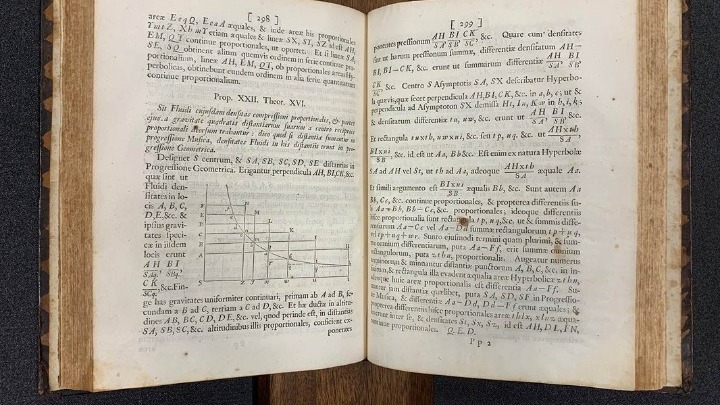 [ 298 ]
areæ EeqQ, EeaA æquales, & inde areæ his proportionales
YuitZ, XhuiY etiam æquales & lineæ SX, SY, SZ id est AH,
EM, QT continue proportionales, ut oportet. Et si lineæ SA,
SE, SQ obtinent alium quemvis ordinem in serie continue pro-
portionalium, lineæ AH, EM, QT, ob proportionales areas Hy-
perbolicas, obtinebunt eundem ordinem in alia serie quantitatum
continue proportionalium.
Prop. XXII. Theor. XVI.
Sit Fluidi cujusdam densitas compressioni proportionalis, & partes
ejus a gravitate quadratis distantiarum suarum a centro reciproce
proportionali deorsum trahantur: dico quod si distantiæ sumantur in
progressione Musica, densitates Fluidi in his distantiis erunt in pro-
gressione Geometrica.
Designet S centrum, & SA, SB, SC, SD, SE distantias in
Progressione Geometrica. Erigantur perpendicula AH, BI, CK, &c.
quæ sint ut
Fluidi den-
sitates in lo-
cis A, B, C,
D, E, &c. &
ipsius gravi-
tates speci-
cæ in iisdem
locis erunt
AH BI
SAq. SBq.
CK
SCq. &c. Fin-
ge has gravitates uniformiter continuari, primam ab A ad B, se-
cundam a B ad C, tertiam a C ad D, &c. Et hæ ductæ in altitu-
dines AB, BC, CD, DE, &c. vel, quod perinde est, in distantias
SA, SB, SC, &c. altitudinibus illis proportionales, conficient ex-
ponentes
[ 299 ]
ponentes pressionum AH BI CK, &c. Quare cum densitates
SA SB SC
sint ut harum pressionum summæ, differentiæ densitatum AH—
BI, BI—CK, &c. erunt ut summarum differentiæ AH BI
SA SB
CK &c. Centro S Asymptotis SA, SX describatur Hyperbo-
SC
la quævis, quæ secet perpendicula AH, BI, CK, &c. in a, b, c; ut &
perpendicula ad Asymptoton SX demissa Ht, Iu, Kw in h, i, k;
& densitatum differentiæ tu, uw, &c. erunt ut AH BI &c.
SA SB
Et rectangula tuxth, uwxui, &c. seu tp, uq, &c. ut AHxth
SA
BIxui &c. id est ut Aa, Bb &c. Est enim ex natura Hyperbolæ
SB
SA ad AH vel St, ut th ad Aa, adeoque AHxth æquale Aa.
SA
Et simili argumento est BIxui æqualis Bb, &c. Sunt autem Aa
SB
Bb, Cc, &c. continue proportionales, & propterea differentiis su-
is Aa—Bb, Bb—Cc, &c. proportionales; ideoque differentiis
hisce proportionalia sunt rectangula tp, uq, &c. ut & summis diffe-
rentiarum Aa—Cc vel Aa—Dd summæ rectangulorum tp+uq,
vel tp+uq+wr. Sunto ejusmodi termini quam plurimi, & sum-
ma omnium differentiarum, puta Aa—Ff, erit summæ omnium
rectangulorum, puta zthn, proportionalis. Augeatur numerus
terminorum & minuantur distantiæ punctorum A, B, C, &c. in in-
finitum, & rectangula illa evadent æqualia areæ Hyperbolicæ zthn,
adeoque huic areæ proportionalis est differentia Aa—Ff. Su-
mantur jam distantiæ quælibet, puta SA, SD, SF in Progressio-
ne Musica, & differentiæ Aa—Dd, Dd—Ff erunt æquales; &
propterea differentiis hisce proportionales areæ thlx, xlnz æqua-
les erunt inter se, & densitates St, Sx, Sz, id est AH, DL, FN,
continue proportionales. Q. E. D.
Pp 2